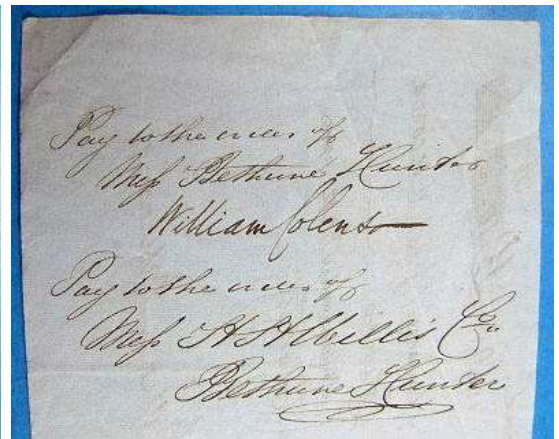 Pay to the order of
Mess Bethune Hunter
William Colenso
Pay to the order of
Mess H H Willis Co
Bethune Hunter